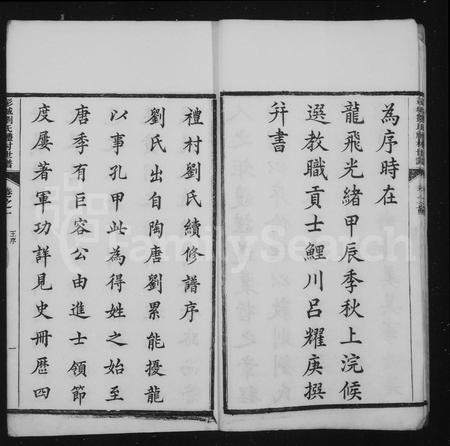 為序時在
龍飛光緒甲辰季秋上浣候
選教職貢士鯉川呂耀庚撰
并書
禮村劉氏續修譜序
劉氏出自陶唐劉累能擾龍
以事孔甲此為得姓之始至
唐季有巨容公由進士領節
度屢著軍功詳見史冊歷四
彭城劉氏禮村世譜
卷之一
王序
一
FamilySearch